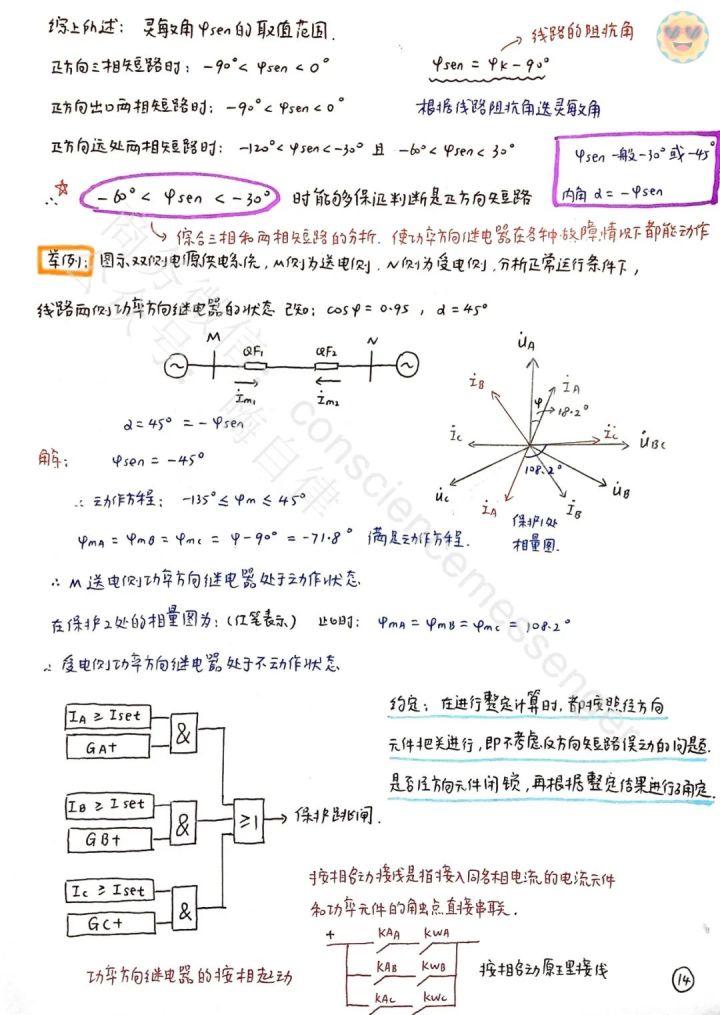 综上所述: 灵敏角φsen的取值范围.
线路的阻抗角
正方向三相短路时: -90°< φsen < 0°
φsen = φk - 90°
正方向出口两相短路时: -90°< φsen < 0°
根据线路阻抗角选灵敏角
正方向远处两相短路时: -120°< φsen < -30° 且 -60°< φsen < 30°
φsen 一般 -30° 或 -45°
内角 α = -φsen
∴ ☆ -60°< φsen < -30° 时能够保证判断是正方向短路
综合三相和两相短路的分析. 使功率方向继电器在各种故障情况下都能动作
举例: 图示双侧电源供电系统, M侧为送电侧, N侧为受电侧, 分析正常运行条件下,
线路两侧功率方向继电器的状态 已知: cosφ = 0.95 , α = 45°
M QF1 QF2 N
İm1 İm2
U̇A
İB İA
φ 18.2°
İc İc U̇Bc
108.2°
U̇c İA İB U̇B
保护1处
相量图.
α = 45° = -φsen
解: φsen = -45°
∴ 动作方程: -135° ≤ φm ≤ 45°
φmA = φmB = φmc = φ-90° = -71.8° 满足动作方程.
∴ M 送电侧功率方向继电器处于动作状态
在保护2处的相量图为: (红笔表示) 此时: φmA = φmB = φmc = 108.2°
∴ 受电侧功率方向继电器处于不动作状态
约定: 在进行整定计算时, 都按照经方向
元件把关进行, 即不考虑反方向短路误动的问题.
是否经方向元件闭锁, 再根据整定结果进行确定.
IA ≥ Iset
GA+
&
IB ≥ Iset
GB+
&
≥1
保护跳闸.
Ic ≥ Iset
GC+
&
按相启动接线是指接入同名相电流的电流元件
和功率元件的触点直接串联.
+ KAA KWA
KAB KWB
KAc KWc
按相启动原理接线
功率方向继电器的按相起动
14
consciencemessenger